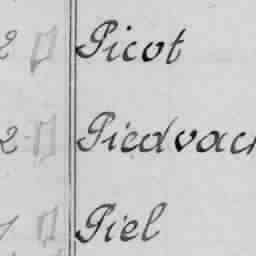 2 Picot
2 Piedvach
1 Piel